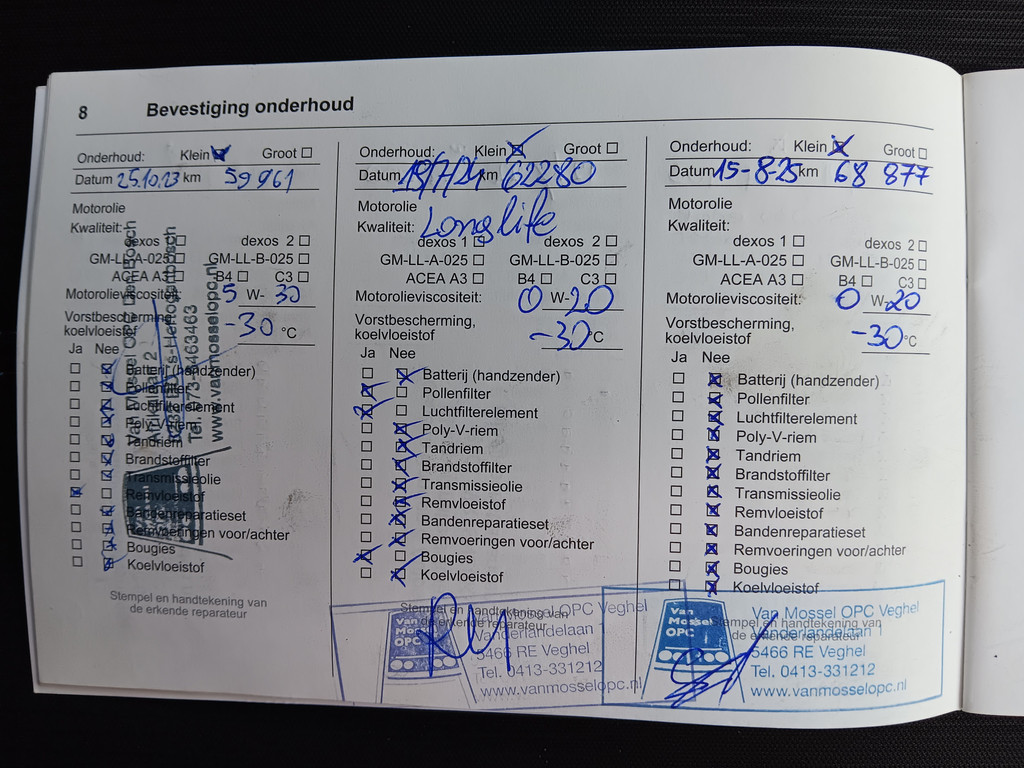 8 Bevestiging onderhoud
Onderhoud: Klein Groot
Datum 25.10.23 km 59 961
Motorolie
Kwaliteit:
dexos 1 dexos 2
GM-LL-A-025 GM-LL-B-025
ACEA A3 B4 C3
Motorolieviscositeit: 5 W- 30
Vorstbescherming,
koelvloeistof -30 °C
Ja Nee
Batterij (handzender)
Pollenfilter
Luchtfilterelement
Poly-V-riem
Tandriem
Brandstoffilter
Transmissieolie
Remvloeistof
Bandenreparatieset
Remvoeringen voor/achter
Bougies
Koelvloeistof
Stempel en handtekening van
de erkende reparateur
Van Mossel OPC Den Bosch
's-Hertogenbosch
www.vanmosselopc.nl
Onderhoud: Klein Groot
Datum 18/7/24 km 62280
Motorolie
Kwaliteit: Longlife
dexos 1 dexos 2
GM-LL-A-025 GM-LL-B-025
ACEA A3 B4 C3
Motorolieviscositeit: 0 W-20
Vorstbescherming,
koelvloeistof -30 °C
Ja Nee
Batterij (handzender)
Pollenfilter
Luchtfilterelement
Poly-V-riem
Tandriem
Brandstoffilter
Transmissieolie
Remvloeistof
Bandenreparatieset
Remvoeringen voor/achter
Bougies
Koelvloeistof
Stempel en handtekening van
de erkende reparateur
Van Mossel OPC
Van Mossel OPC Veghel
Vanderlandelaan 1
5466 RE Veghel
Tel. 0413-331212
www.vanmosselopc.nl
Onderhoud: Klein Groot
Datum 15-8-25 km 68 877
Motorolie
Kwaliteit:
dexos 1 dexos 2
GM-LL-A-025 GM-LL-B-025
ACEA A3 B4 C3
Motorolieviscositeit: 0 W-20
Vorstbescherming,
koelvloeistof -30 °C
Ja Nee
Batterij (handzender)
Pollenfilter
Luchtfilterelement
Poly-V-riem
Tandriem
Brandstoffilter
Transmissieolie
Remvloeistof
Bandenreparatieset
Remvoeringen voor/achter
Bougies
Koelvloeistof
Stempel en handtekening van
de erkende reparateur
Van
Mossel
OPC
Van Mossel OPC Veghel
Vanderlandelaan 1
5466 RE Veghel
Tel. 0413-331212
www.vanmosselopc.nl